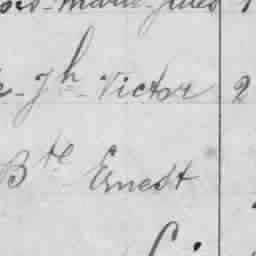 Marie-Jules
Jh - Victor 2
Bte Ernest